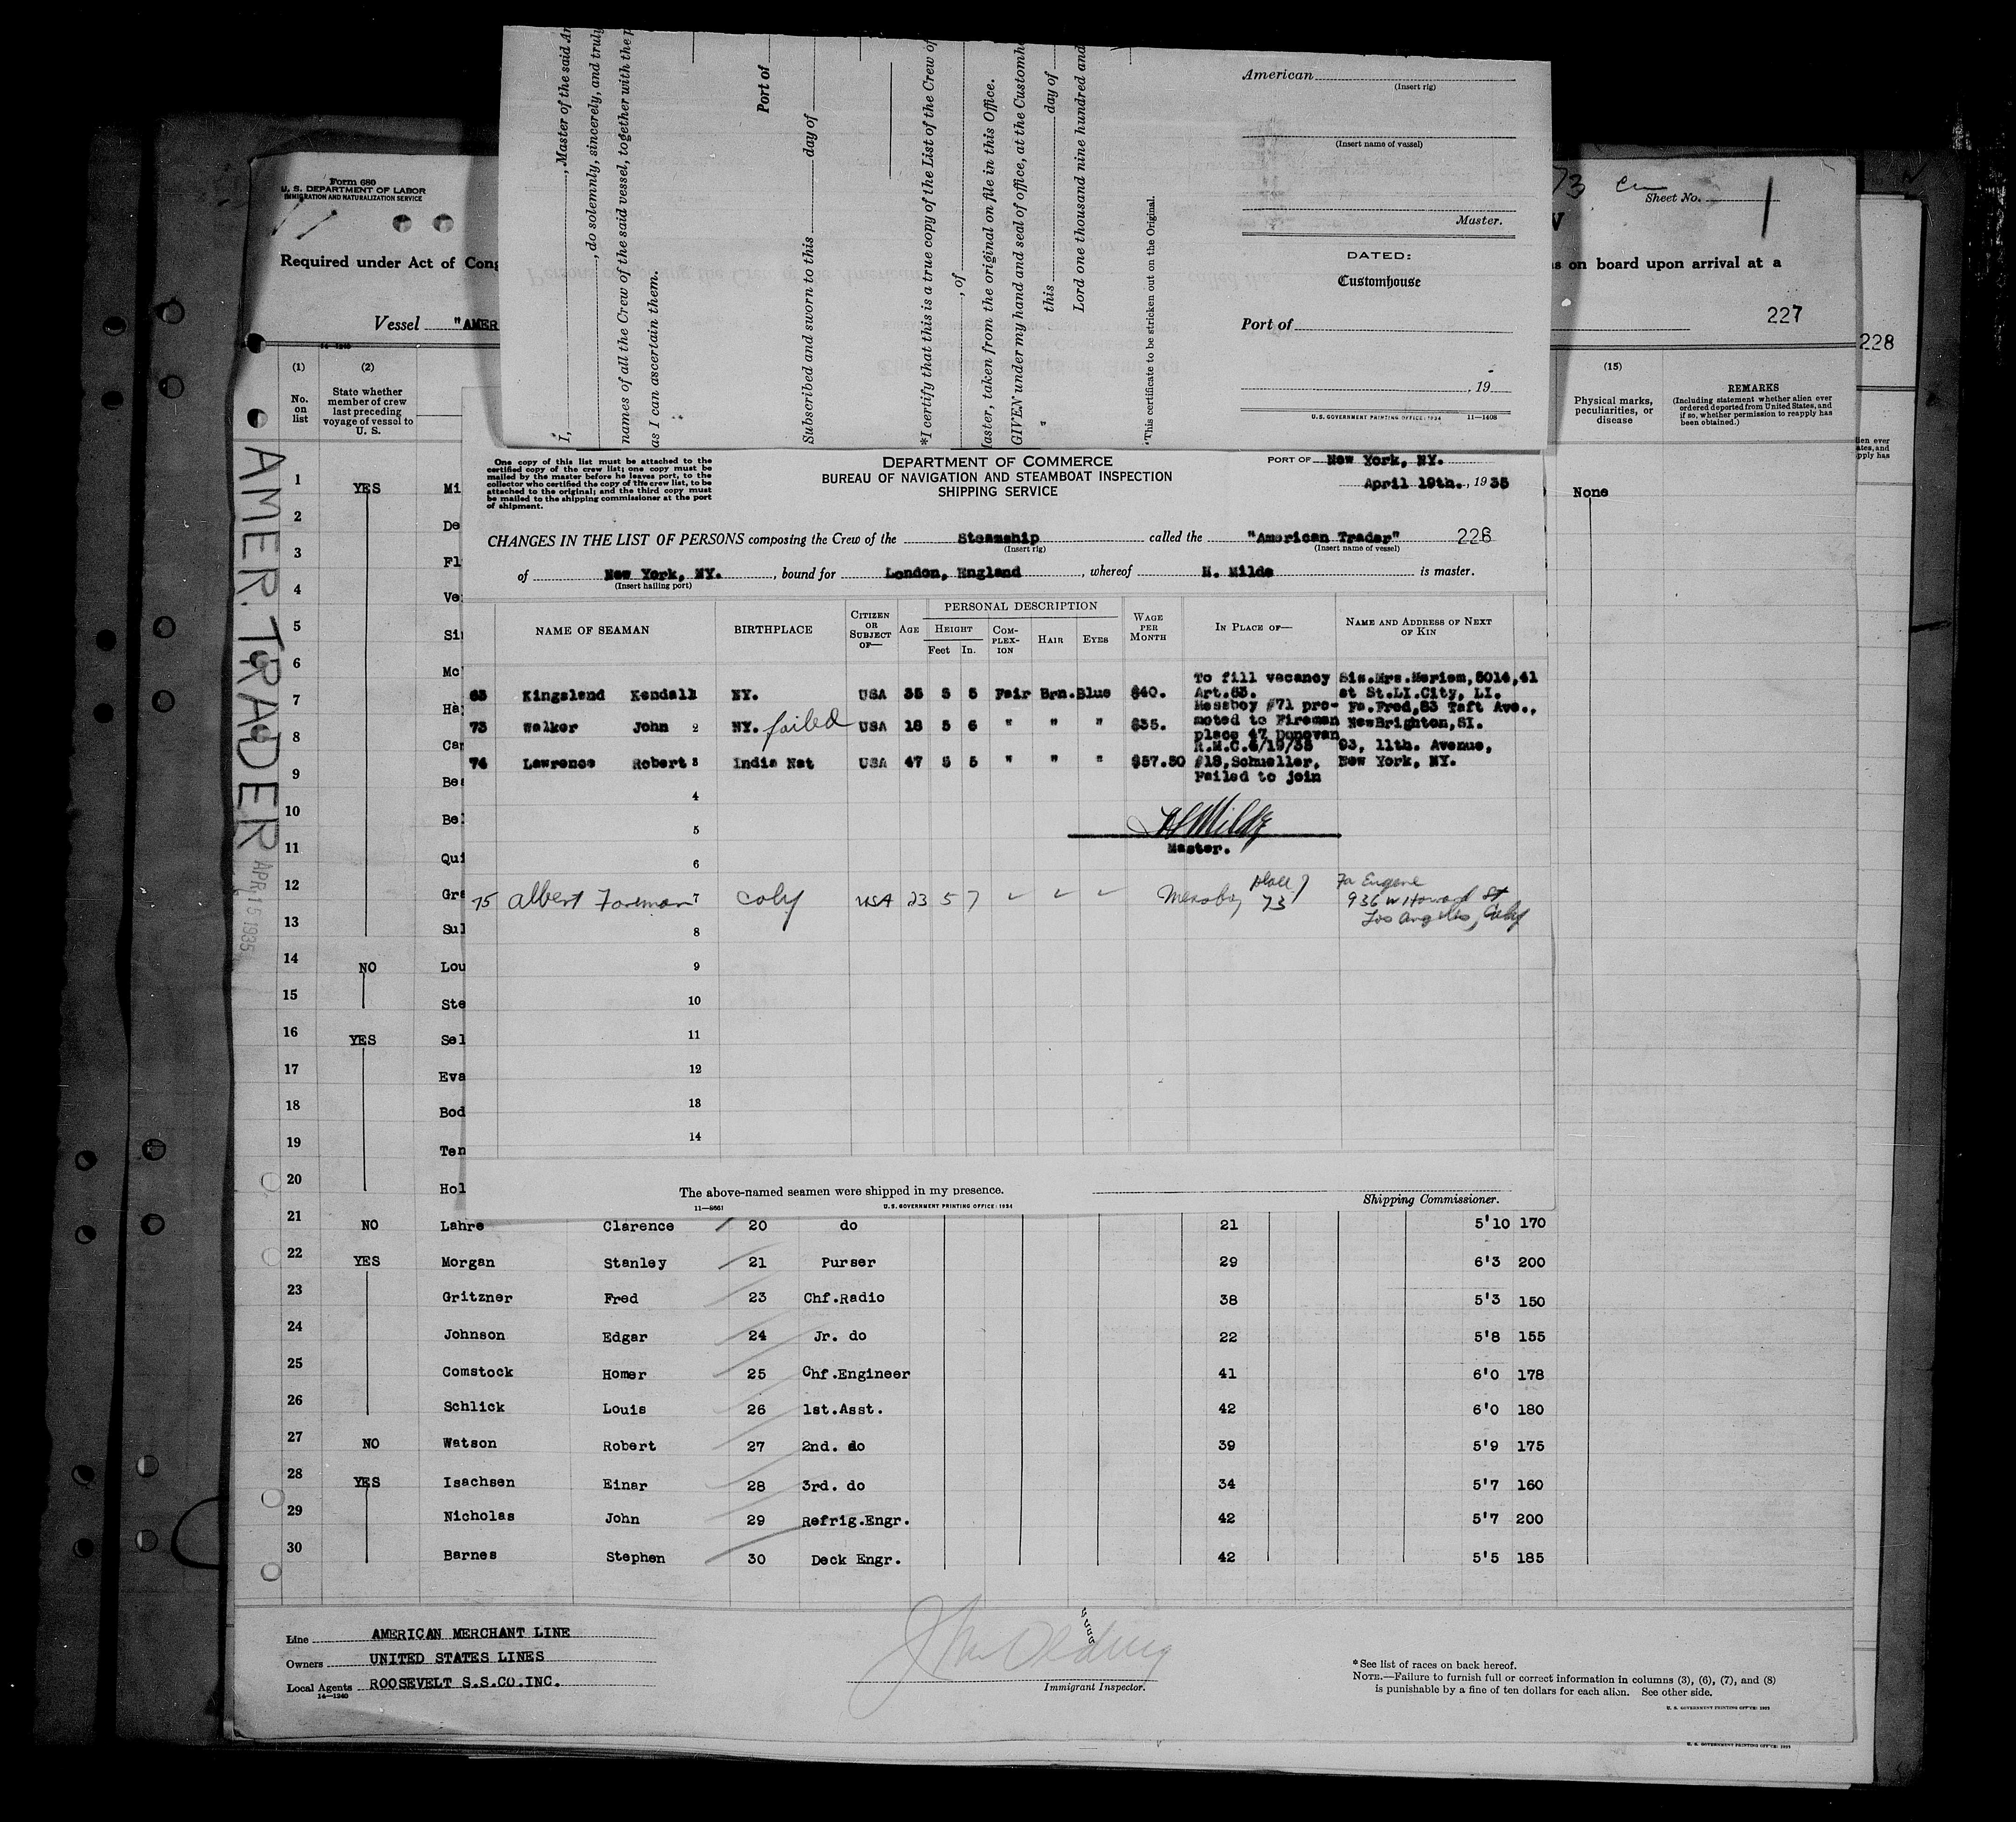 American
(Insert rig)
(Insert name of vessel)
Master.
DATED:
Customhouse
Port of
, 19
U.S. GOVERNMENT PRINTING OFFICE: 1934 11—1408
I,
, Master of the said
, do solemnly, sincerely, and truly
names of all the Crew of the said vessel, together with the
as I can ascertain them.
Port of
Subscribed and sworn to this day of
*I certify that this is a true copy of the List of the Crew of
, of
aster, taken from the original on file in this Office.
GIVEN under my hand and seal of office, at the Customho
this day of
Lord one thousand nine hundred and
*This certificate to be stricken out on the Original.
Form 680
U. S. DEPARTMENT OF LABOR
IMMIGRATION AND NATURALIZATION SERVICE
Sheet No. 1
Required under Act of Cong
s on board upon arrival at a
Vessel "AMER
227
228
14—1240
(1)
No.
on
list
(2)
State whether
member of crew
last preceding
voyage of vessel to
U. S.
(15)
Physical marks,
peculiarities, or
disease
REMARKS
(Including statement whether alien ever
ordered deported from United States, and
if so, whether permission to reapply has
been obtained.)
AMER. TRADER
APR 15 1935
None
One copy of this list must be attached to the
certified copy of the crew list; one copy must be
mailed by the master before he leaves port, to the
collector who certified the copy of the crew list, to be
attached to the original; and the third copy must
be mailed to the shipping commissioner at the port
of shipment.
DEPARTMENT OF COMMERCE
BUREAU OF NAVIGATION AND STEAMBOAT INSPECTION
SHIPPING SERVICE
PORT OF New York, NY.
April 19th., 1935
CHANGES IN THE LIST OF PERSONS composing the Crew of the Steamship called the "American Trader" 226
(Insert rig) (Insert name of vessel)
of New York, NY. , bound for London, England , whereof H. Milde is master.
(Insert hailing port)
NAME OF SEAMAN
BIRTHPLACE
CITIZEN
OR
SUBJECT
OF—
AGE
PERSONAL DESCRIPTION
HEIGHT
Feet In.
COM-
PLEX-
ION
HAIR
EYES
WAGE
PER
MONTH
IN PLACE OF—
NAME AND ADDRESS OF NEXT
OF KIN
To fill vacancy Sis.Mrs.Meriem,5014,41
63 Kingsland Kendall NY. USA 35 5 5 Fair Brn. Blue $40. Art.63. st St.LI.City, LI.
Messboy #71 pro- Fa.Fred,83 Taft Ave.,
73 Walker John 2 NY. failed USA 18 5 6 " " " $35. moted to Fireman NewBrighton,SI.
place 47 Donovan
R.M.C.4/19/35 93, 11th. Avenue,
74 Lawrence Robert 3 India Nat USA 47 5 5 " " " $57.50 #18,Schueller, New York, NY.
Failed to join
4
H Milde
5
Master.
6
75 Albert Foreman 7 Calif USA 23 5 7 ✓ ✓ ✓ Messboy place 73 Fa Eugene
936 W Howard St
Los Angeles, Calif
8
9
10
11
12
13
14
The above-named seamen were shipped in my presence.
Shipping Commissioner.
11—8661 U.S. GOVERNMENT PRINTING OFFICE: 1934
1 YES Mi
2 De
3 Fl
4 Ve
5 Si
6 Mc
7 Ha
8 Car
9 Bea
10 Bel
11 Qui
12 Gra
13 Sul
14 NO Lou
15 Ste
16 YES Sel
17 Eva
18 Bod
19 Ten
20 Hol
21 NO Lahre Clarence 20 do 21 5'10 170
22 YES Morgan Stanley 21 Purser 29 6'3 200
23 Gritzner Fred 23 Chf.Radio 38 5'3 150
24 Johnson Edgar 24 Jr. do 22 5'8 155
25 Comstock Homer 25 Chf.Engineer 41 6'0 178
26 Schlick Louis 26 1st.Asst. 42 6'0 180
27 NO Watson Robert 27 2nd. do 39 5'9 175
28 YES Isachsen Einar 28 3rd. do 34 5'7 160
29 Nicholas John 29 Refrig.Engr. 42 5'7 200
30 Barnes Stephen 30 Deck Engr. 42 5'5 185
Line AMERICAN MERCHANT LINE
Owners UNITED STATES LINES
Local Agents ROOSEVELT S.S.CO.INC.
14—1240
Immigrant Inspector.
*See list of races on back hereof.
NOTE.—Failure to furnish full or correct information in columns (3), (6), (7), and (8)
is punishable by a fine of ten dollars for each alien. See other side.
U. S. GOVERNMENT PRINTING OFFICE: 1933